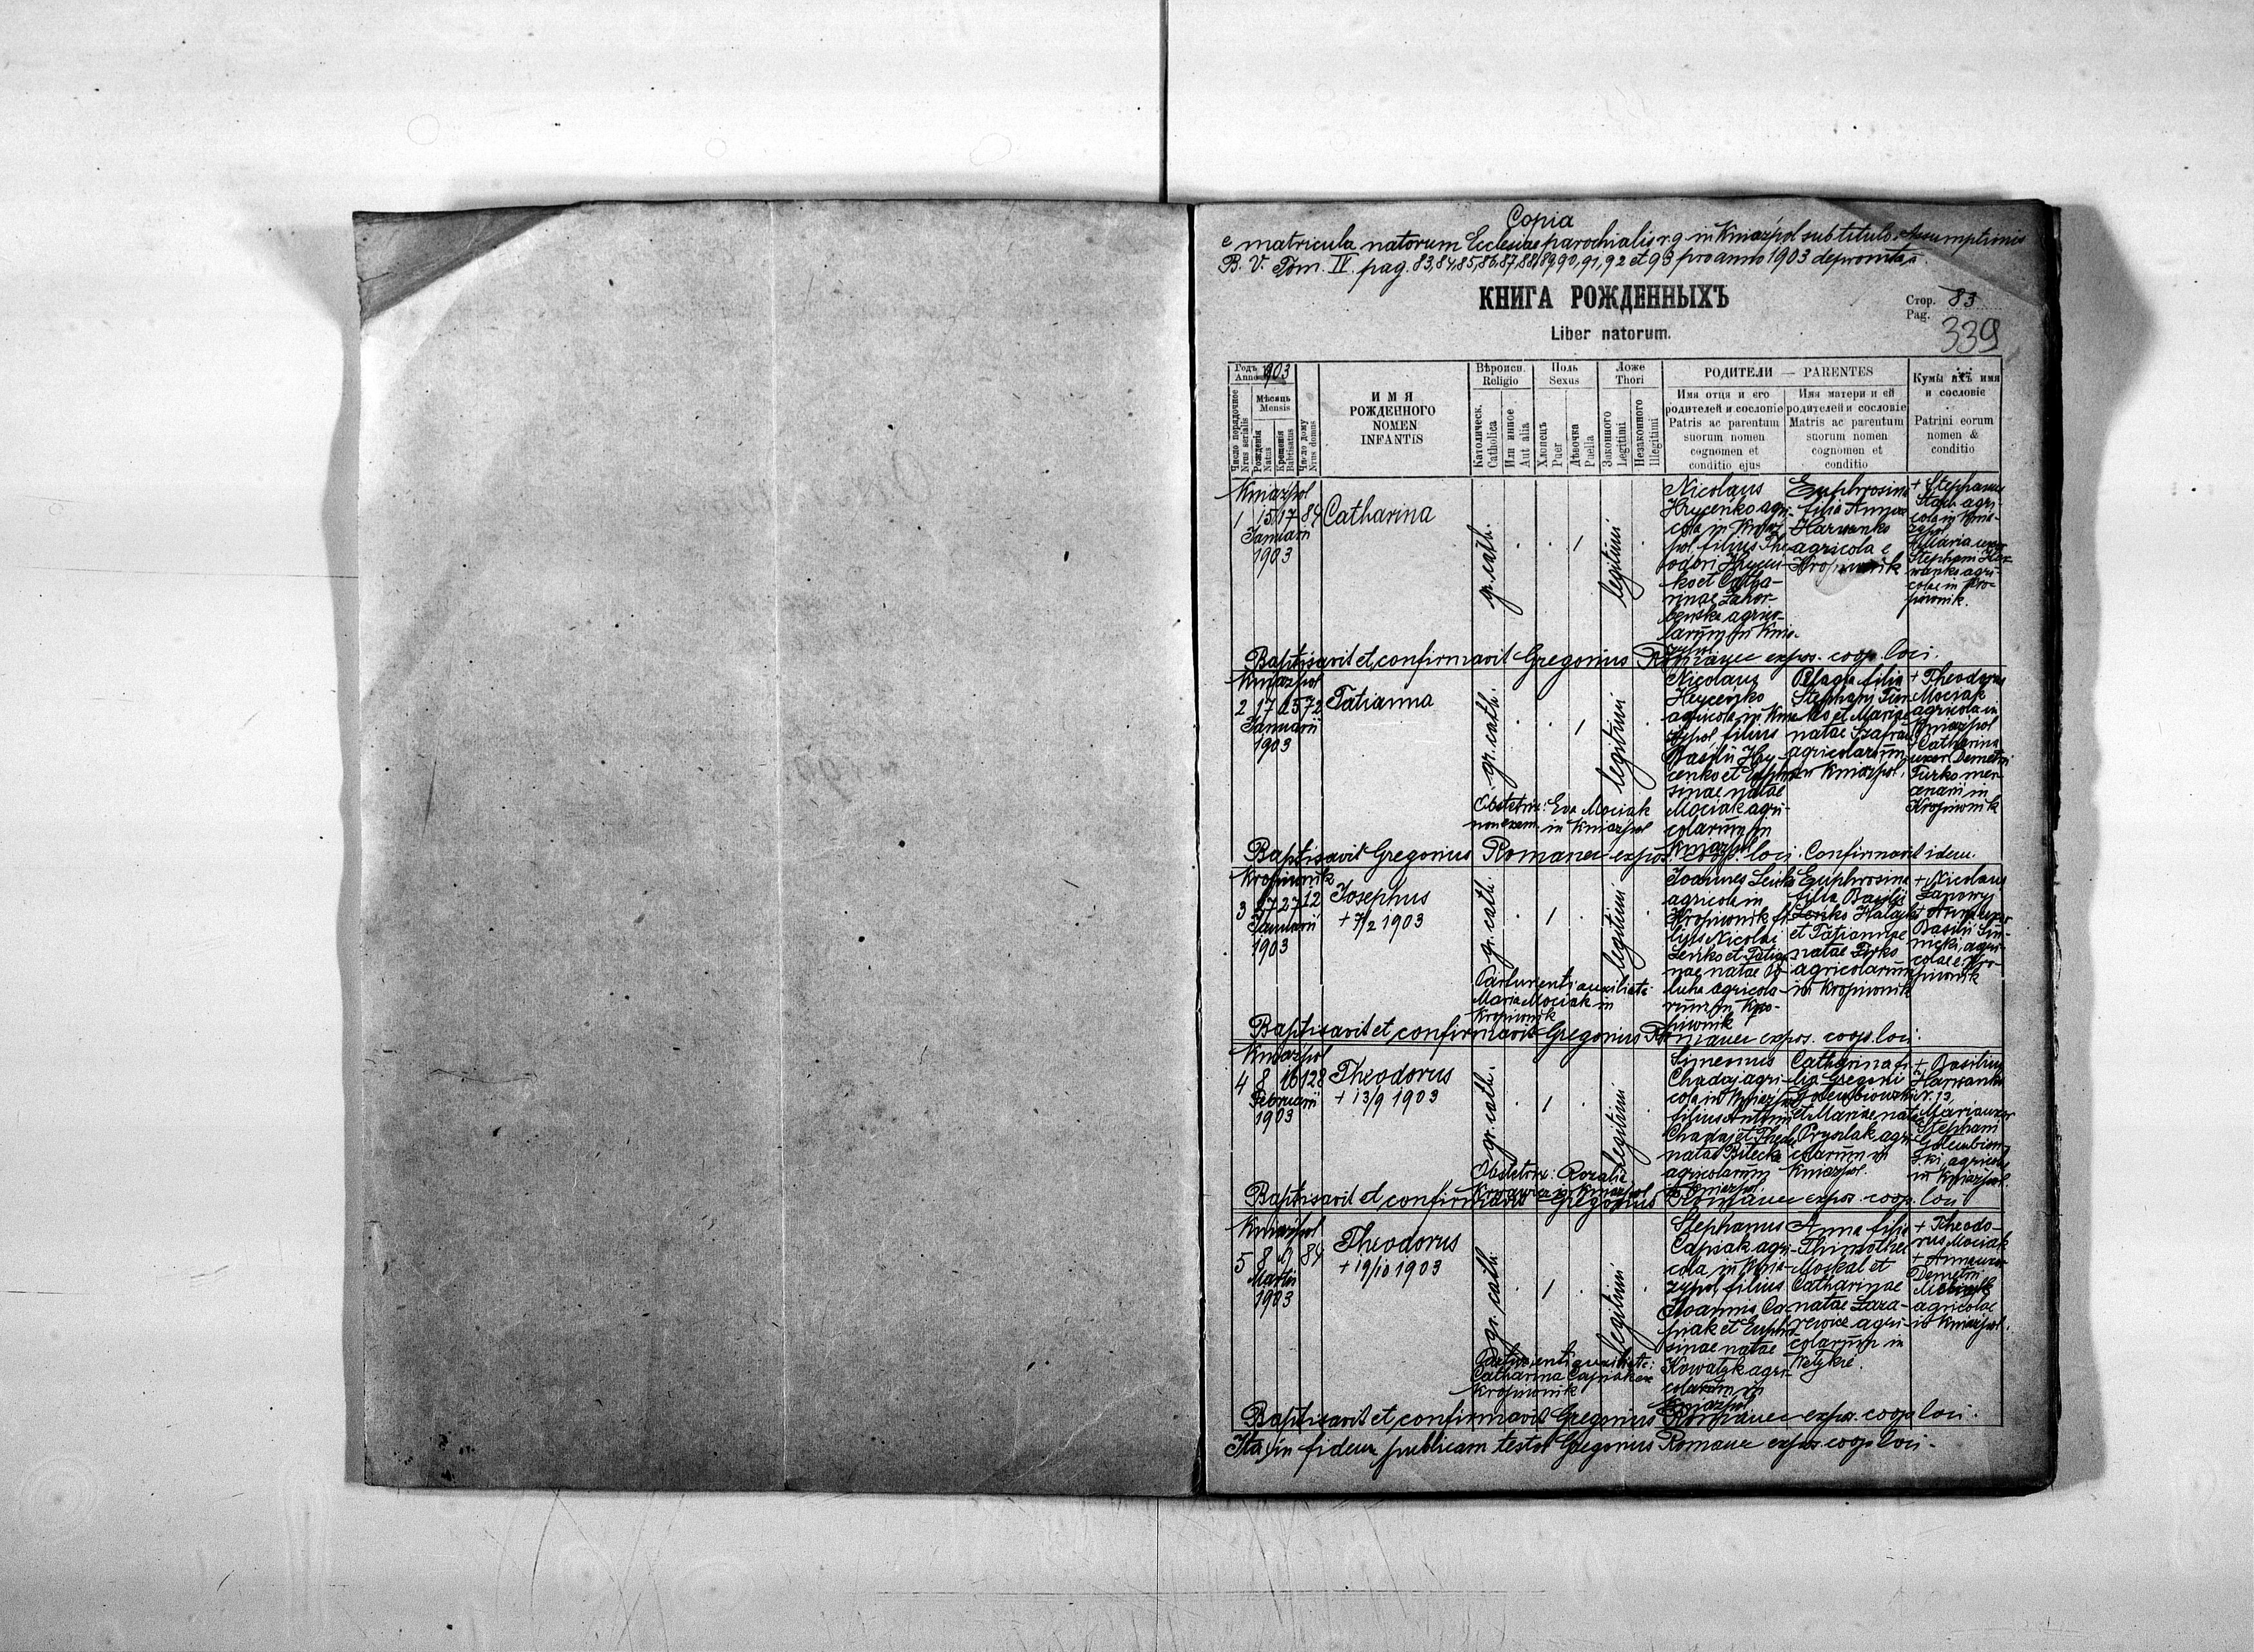 Copia
e matricula natorum Ecclesiae parochialis r. g. in Kniaźpol sub titulo Assumptionis
B. V. Tom. IV. pag. 83, 84, 85, 86, 87, 88, 89, 90, 91, 92 et 93 pro anno 1903 deprompta
КНИГА РОЖДЕННЫХЪ
Стор. 83
Pag.
Liber natorum.
339
Годъ 1903
Anno
Число порядочное
Nrus serialis
Мѣсяць
Mensis
Рожденія
Natus
Крещенія
Babtisatus
Число дому
Nrus domus
ИМЯ
РОЖДЕННОГО
NOMEN
INFANTIS
Вѣроисп.
Religio
Католическ.
Catholica
Или инное
Aut alia
Полъ
Sexus
Хлопецъ
Puer
Дѣвочка
Puella
Ложе
Thori
Законного
Legitimi
Незаконного
Illegitimi
РОДИТЕЛИ — PARENTES
Имя отца и его
родителей и сословіе
Patris ac parentum
suorum nomen
cognomen et
conditio ejus
Имя матери и ей
родителей и сословіе
Matris ac parentum
suorum nomen
cognomen et
conditio
Кумы ихъ имя
и сословіе
Patrini eorum
nomen &
conditio
Kniaźpol
1 15 17 84
Januarii
1903
Catharina
gr. cath.
legitimi
Nicolaus
Hrycenko agri-
cola in Kniaź-
pol filius The-
odori Hrycen-
ko et Catha-
rinae
agrico-
larum in Knia-
Euphrosina
filia
agricola e
Kropiwnik
+ Stephanus
agri-
cola in Knia-
zpol
Maria uxor
Stephani
agri-
colae in Kro-
piwnik.
Baptisavit et confirmavit Gregorius Romanec expos. coop. loci.
Kniaźpol
2 17 25 72
Januarii
1903
Tatianna
gr. cath.
legitimi
Nicolaus
Hrycenko
agricola in Knia-
zpol filius
Basilii Hry-
cenko et Euphro-
sinae natae
Mociak agri-
colarum in
Kniazpol
Pelagia filia
Stephani
et Mariae
natae
agricolarum
in Kniaźpol.
+ Theodorus
Mociak
agricola in
Kniaźpol
+ Catharina
uxor Demetri
Turko
in
Kropiwnik
Obstetrix: Eva Mociak
non exam. in Kniaźpol
Baptisavit Gregorius Romanec expos. coop. loci. Confirmavit idem.
Kropiwnik
3 27 27 12
Januarii
1903
Josephus
+ 7/2 1903
gr. cath.
legitimi
Joannes Leńko
agricola in
Kropiwnik fi-
lius Nicolai
Leńko et Tatian-
nae natae
agricola-
rum in Kro-
piwnik
Euphrosina
filia Basilii
Leńko
et Tatiannae
natae
agricolarum
in Kropiwnik
+ Nicolaus
+ Anna uxor
Basilii
agri-
colae e Kro-
piwnik
Parturienti auxiliata
Maria Mociak in
Kropiwnik
Baptisavit et confirmavit Gregorius Romanec expos. coop. loci.
Kniaźpol
4 8 16 128
Februarii
1903
Theodorus
+ 13/9 1903
gr. cath.
legitimi
Simeonus
Chadaj agri-
cola in Kniaźpol
filius Antonii
Chadaj et Theclae
natae Bilecka
agricolarum
in Kniazpol.
Catharina fi-
lia Gregorii
Golembiowski
et Mariae natae
agri-
colarum in
Kniazpol.
+ Basilius
Nr. 13,
Maria uxor
Stephani
Golembiow-
ski, agricolae
in Kniaźpol.
Obstetrix: Rozalia
in Kniaźpol
Baptisavit et confirmavit Gregorius Romanec expos. coop. loci
Kniaźpol
5 8 9 84
Martii
1903
Theodorus
+ 19/10 1903
gr. cath.
legitimi
Stephanus
Capiak agri-
cola in Knia-
zpol filius
Joannis Ca-
piak et Euphro-
sinae natae
Kowalyk agri-
colarum in
Kniaźpol
Anna filia
Thimothei
Moskal et
Catharinae
natae Laza-
rewicz agri-
colarum in
+ Theodo-
rus Mociak
+ Anna uxor
Demetrii
agricolae
in Kniaźpol.
Parturienti auxiliata:
Catharina Capiak ex
Kropiwnik
Baptisavit et confirmavit Gregorius Romanec expos. coop. loci.
Ita in fidem publicam testor Gregorius Romanec expos. coop. loci.